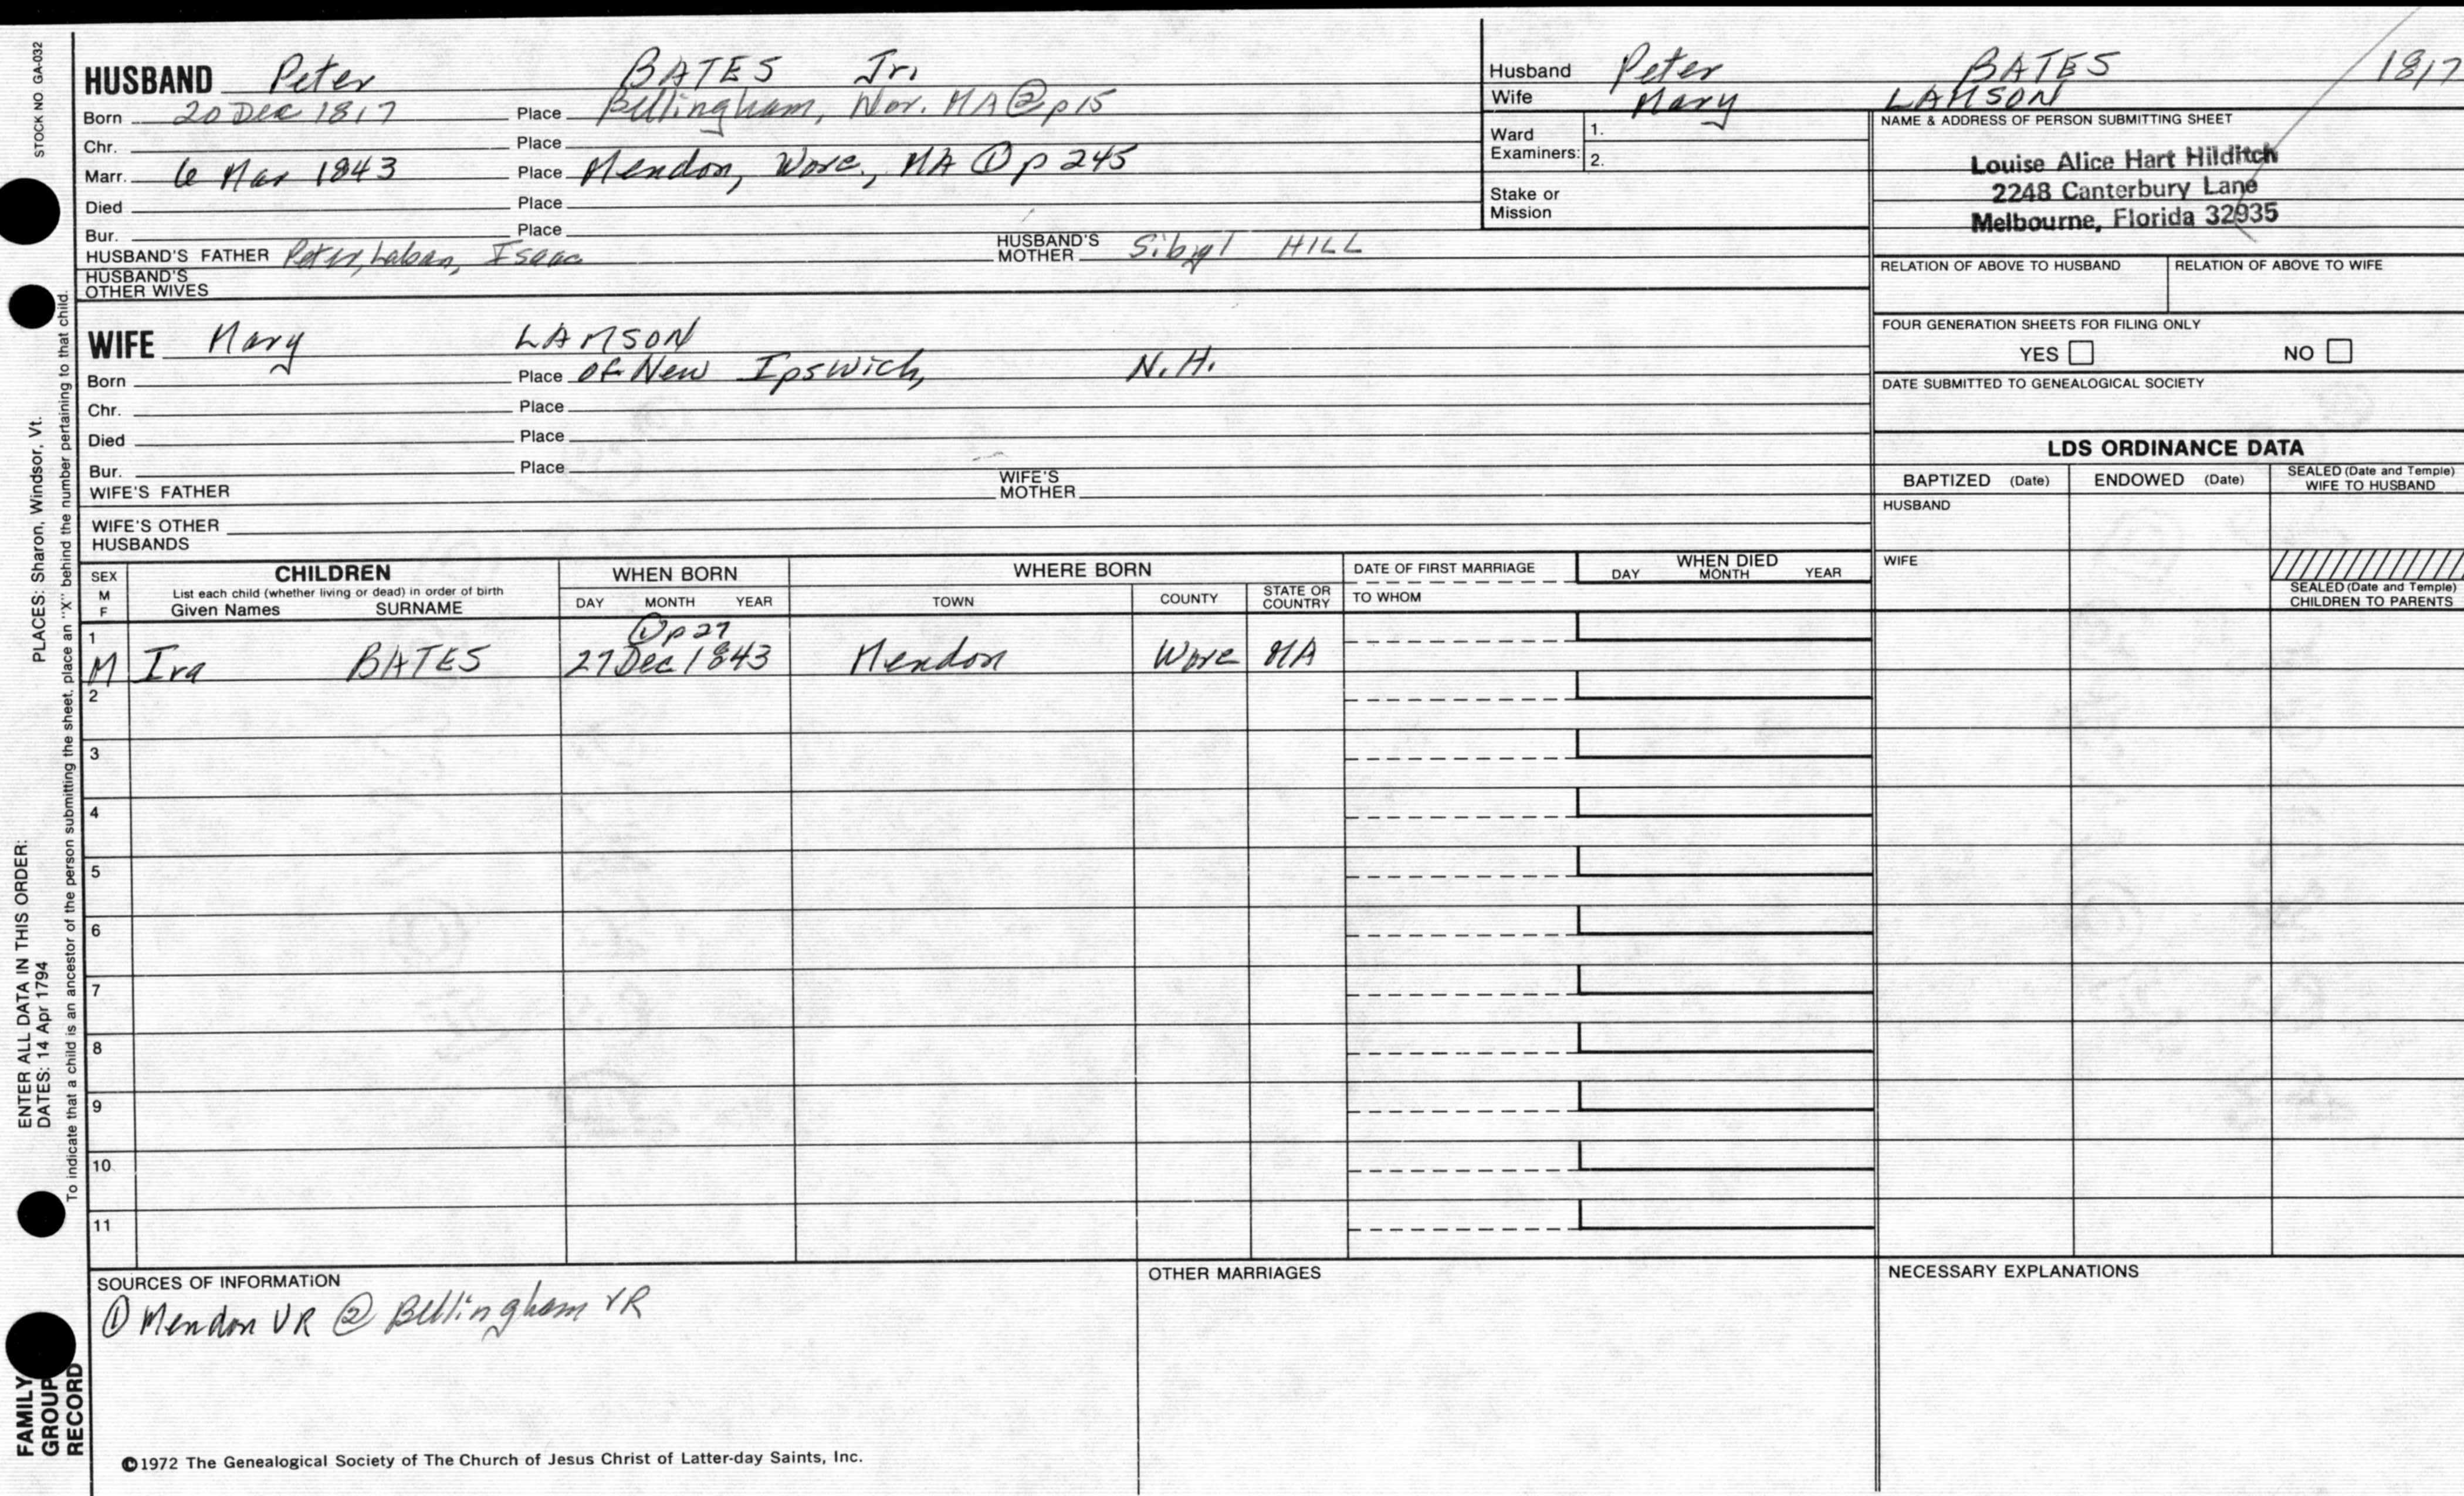 STOCK NO. GA-032
PLACES: Sharon, Windsor, Vt.
ENTER ALL DATA IN THIS ORDER:
DATES: 14 Apr 1794
To indicate that a child is an ancestor of the person submitting the sheet, place an "X" behind the number pertaining to that child.
FAMILY GROUP RECORD
HUSBAND Peter BATES Jr.
Born 20 Dec 1817 Place Bellingham, Nor. MA ② p15
Chr. Place
Marr. 6 Mar 1843 Place Mendon, Worc., MA ① p 245
Died Place
Bur. Place
HUSBAND'S FATHER Peter, Laban, Isaac HUSBAND'S MOTHER Sibyl HILL
HUSBAND'S OTHER WIVES
Husband Peter BATES 1817
Wife Mary LAMSON
Ward Examiners: 1. 2.
Stake or Mission
NAME & ADDRESS OF PERSON SUBMITTING SHEET
Louise Alice Hart Hilditch
2248 Canterbury Lane
Melbourne, Florida 32935
RELATION OF ABOVE TO HUSBAND RELATION OF ABOVE TO WIFE
FOUR GENERATION SHEETS FOR FILING ONLY
YES NO
DATE SUBMITTED TO GENEALOGICAL SOCIETY
WIFE Mary LAMSON
Born Place of New Ipswich, N.H.
Chr. Place
Died Place
Bur. Place
WIFE'S FATHER WIFE'S MOTHER
WIFE'S OTHER HUSBANDS
LDS ORDINANCE DATA
BAPTIZED (Date) ENDOWED (Date) SEALED (Date and Temple) WIFE TO HUSBAND
HUSBAND
WIFE
SEALED (Date and Temple) CHILDREN TO PARENTS
SEX M F
CHILDREN
List each child (whether living or dead) in order of birth
Given Names SURNAME
WHEN BORN
DAY MONTH YEAR
WHERE BORN
TOWN COUNTY STATE OR COUNTRY
DATE OF FIRST MARRIAGE
TO WHOM
WHEN DIED
DAY MONTH YEAR
1 ① p 27
M Ira BATES 27 Dec 1843 Mendon Worc MA
2
3
4
5
6
7
8
9
10
11
SOURCES OF INFORMATION
① Mendon VR ② Bellingham VR
OTHER MARRIAGES
NECESSARY EXPLANATIONS
©1972 The Genealogical Society of The Church of Jesus Christ of Latter-day Saints, Inc.